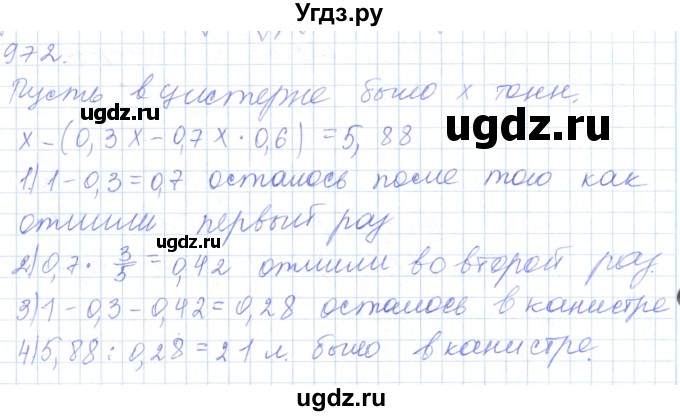 Угдз.ру
972.
Пусть в цистерне было x тонн.
x - (0,3x - 0,7x · 0,6) = 5,88
1) 1 - 0,3 = 0,7 осталось после того как
отлили первый раз
2) 0,7 · 3/5 = 0,42 отлили во второй раз.
3) 1 - 0,3 - 0,42 = 0,28 осталось в канистре
4) 5,88 : 0,28 = 21 л. было в канистре.
ugdz.ru
ugdz.ru
ugdz.ru
ugdz.ru
ugdz.ru
Угдз.ру